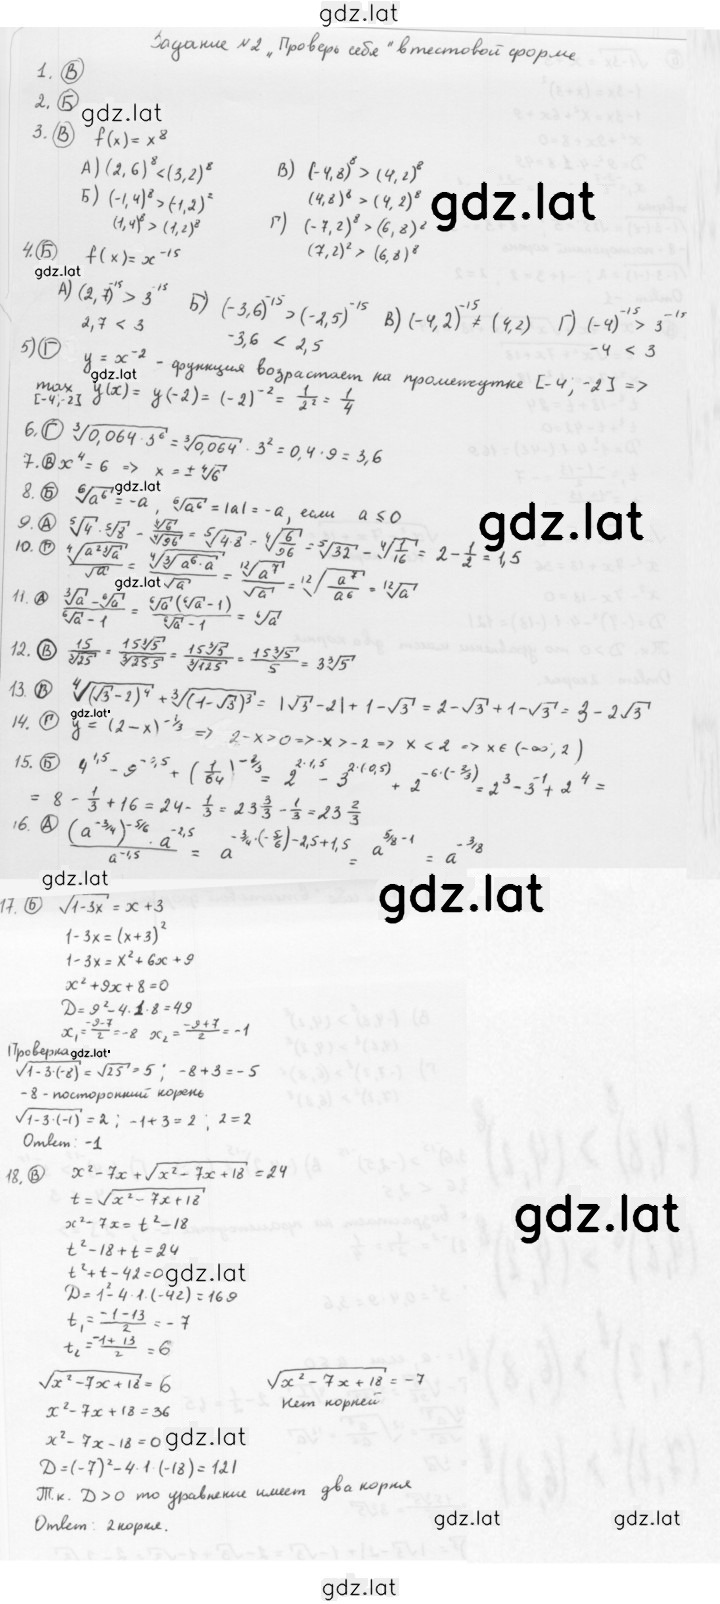 gdz.lat
Задание №2 „Проверь себя" в тестовой форме
1. В
2. Б
gdz.lat
3. В f(x) = x^8
А) (2,6)^8 < (3,2)^8 В) (-4,8)^8 > (4,2)^8
gdz.lat
Б) (-1,4)^8 > (-1,2)^2 (4,8)^8 > (4,2)^8
(1,4)^8 > (1,2)^8 Г) (-7,2)^8 > (6,8)^8
4. Б f(x) = x^{-15} (7,2)^2 > (6,8)^8
gdz.lat
А) (2,7)^{-15} > 3^{-15} Б) (-3,6)^{-15} > (-2,5)^{-15} В) (-4,2)^{-15} ≠ (4,2) Г) (-4)^{-15} > 3^{-15}
2,7 < 3 -3,6 < 2,5 -4 < 3
5) Г y = x^{-2} - функция возрастает на промежутке [-4; -2] =>
gdz.lat
max [-4;-2] y(x) = y(-2) = (-2)^{-2} = 1/2² = 1/4
6. Г ∛(0,064 · 3^6) = ∛0,064 · 3² = 0,4 · 9 = 3,6
7. В x^4 = 6 => x = ± ⁴√6
gdz.lat
8. Б ⁶√a^6 = -a, ⁶√a^6 = |a| = -a, если a ≤ 0
gdz.lat
9. А ⁵√4 · ⁵√8 - ⁴√6/⁴√96 = ⁵√(4·8) - ⁴√(6/96) = ⁵√32 - ⁴√(1/16) = 2 - 1/2 = 1,5
10. Г ⁴√(a² ∛a)/√a = ⁴√(∛(a^6 · a))/√a = ¹²√a^7/√a = ¹²√(a^7/a^6) = ¹²√a
gdz.lat
11. А (∛a - ⁶√a)/(⁶√a - 1) = ⁶√a(⁶√a - 1)/(⁶√a - 1) = ⁶√a
12. В 15/∛25 = 15∛5/∛255 = 15∛5/∛125 = 15∛5/5 = 3∛5
13. В ⁴√(√3 - 2)^4 + ∛(1 - √3)^3 = |√3 - 2| + 1 - √3 = 2 - √3 + 1 - √3 = 3 - 2√3
gdz.lat
14. Г y = (2 - x)^{-1/3} => 2 - x > 0 => -x > -2 => x < 2 => x ∈ (-∞; 2)
15. Б 4^{1,5} - 9^{-0,5} + (1/64)^{-2/3} = 2^{2·1,5} - 3^{2·(0,5)} + 2^{-6·(-2/3)} = 2^3 - 3^{-1} + 2^4 =
= 8 - 1/3 + 16 = 24 - 1/3 = 23 3/3 - 1/3 = 23 2/3
16. А (a^{-3/4})^{-5/6} · a^{-2,5} / a^{-1,5} = a^{-3/4·(-5/6) - 2,5 + 1,5} = a^{5/8 - 1} = a^{-3/8}
gdz.lat
gdz.lat
17. Б √(1-3x) = x + 3
1 - 3x = (x + 3)²
1 - 3x = x² + 6x + 9
x² + 9x + 8 = 0
D = 9² - 4·1·8 = 49
x₁ = (-9-7)/2 = -8 x₂ = (-9+7)/2 = -1
Проверка
gdz.lat
√(1-3·(-8)) = √25 = 5; -8 + 3 = -5
-8 - посторонний корень
√(1-3·(-1)) = 2; -1 + 3 = 2; 2 = 2
Ответ: -1
18. В x² - 7x + √(x² - 7x + 18) = 24
t = √(x² - 7x + 18)
gdz.lat
x² - 7x = t² - 18
t² - 18 + t = 24
t² + t - 42 = 0
gdz.lat
D = 1² - 4·1·(-42) = 169
t₁ = (-1-13)/2 = -7
t₂ = (-1+13)/2 = 6
√(x² - 7x + 18) = 6 √(x² - 7x + 18) = -7
x² - 7x + 18 = 36 нет корней
x² - 7x - 18 = 0
gdz.lat
D = (-7)² - 4·1·(-18) = 121
Т.к. D > 0 то уравнение имеет два корня
Ответ: 2 корня.
gdz.lat gdz.lat
gdz.lat